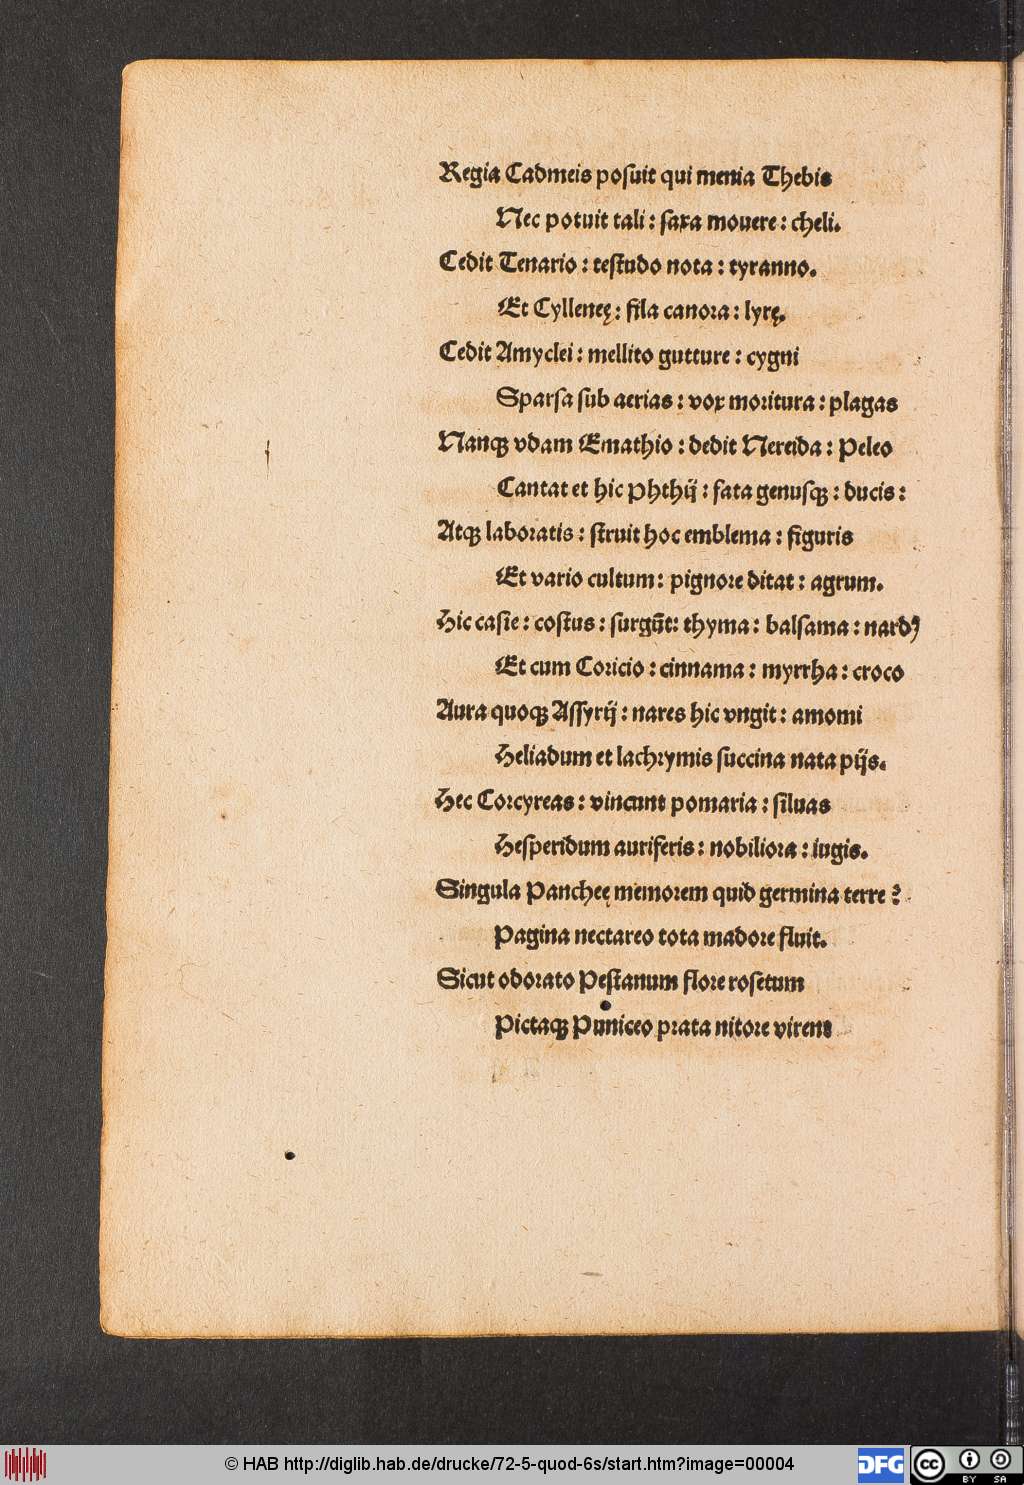 Regia Cadmeis posuit qui menia Thebis
Nec potuit tali : saxa mouere : cheli.
Cedit Tenario : testudo nota : tyranno.
Et Cylleneę : fila canora : lyrę.
Cedit Amyclei : mellito gutture : cygni
Sparsa sub aerias : vox moritura : plagas
Nanqꝫ vdam Emathio : dedit Nereida : Peleo
Cantat et hic Phthij : fata genusqꝫ : ducis :
Atqꝫ laboratis : struit hoc emblema : figuris
Et vario cultum : pignore ditat : agrum.
Hic casie : costus : surgūt : thyma : balsama : nardꝰ
Et cum Coricio : cinnama : myrrha : croco
Aura quoqꝫ Assyrij : nares hic vngit : amomi
Heliadum et lachrymis succina nata pijs.
Hec Corcyreas : vincunt pomaria : siluas
Hesperidum auriferis : nobiliora : iugis.
Singula Pancheę memorem quid germina terre ?
Pagina nectareo tota madore fluit.
Sicut odorato Pestanum flore rosetum
Pictaqꝫ Puniceo prata nitore virent
© HAB http://diglib.hab.de/drucke/72-5-quod-6s/start.htm?image=00004
DFG
cc
BY SA